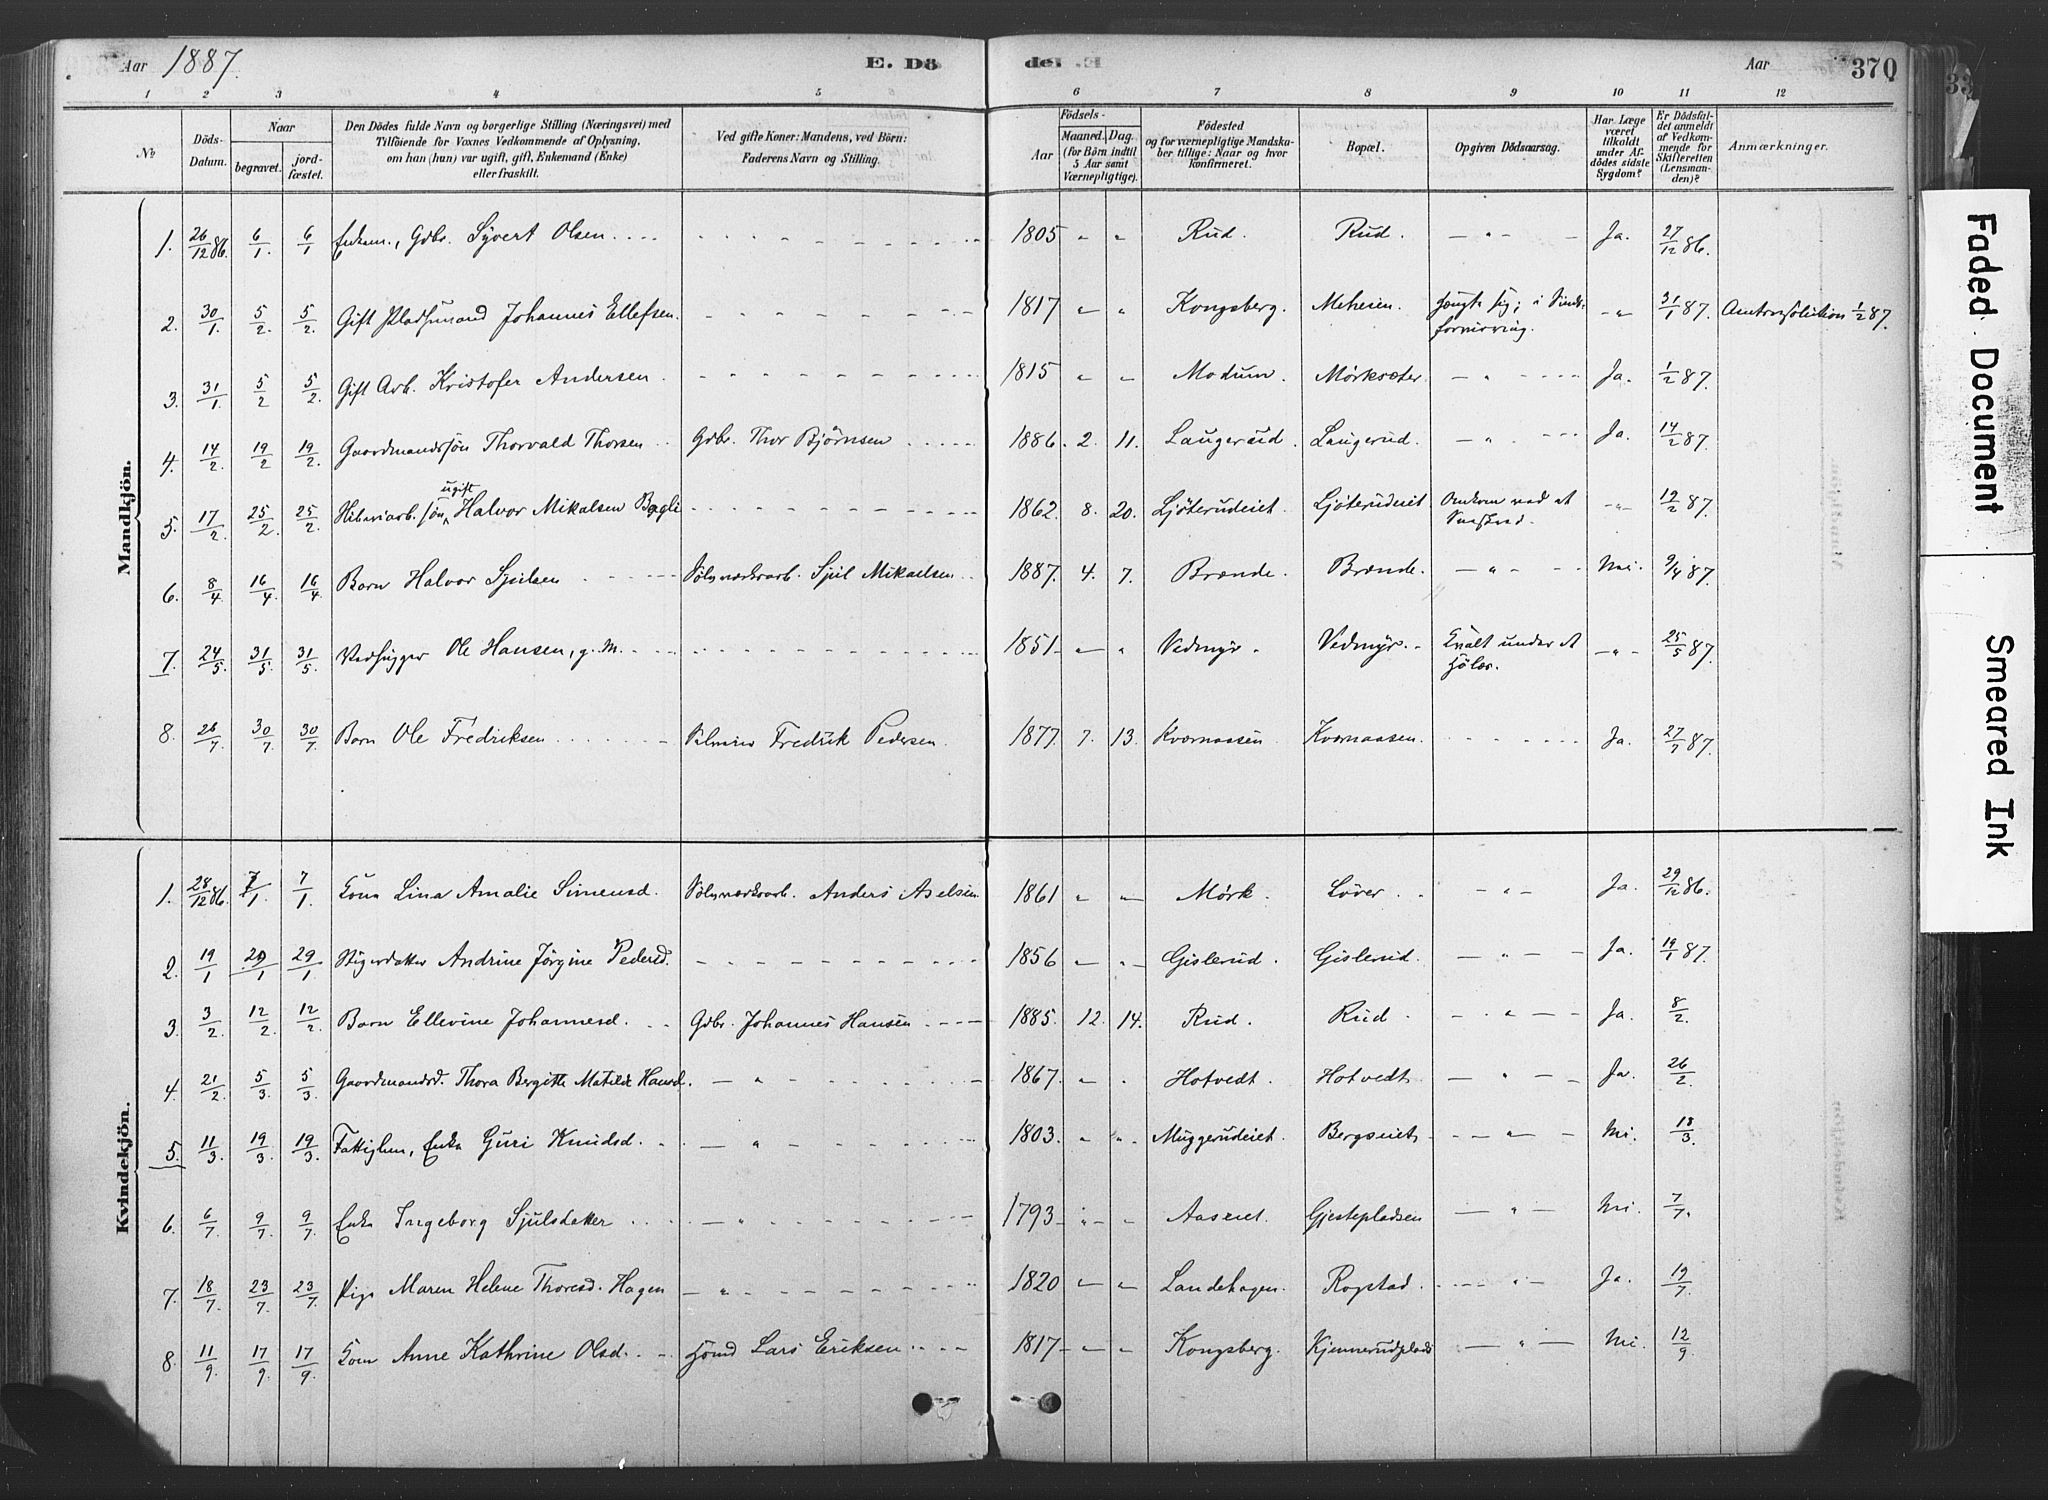 Aar 1887.
E. Dö
del E.
Aar
370
1 2 3 4 5 6 7 8 9 10 11 12
No
Döds-Datum.
Naar
begravet.
jord-fæstet.
Den Dödes fulde Navn og borgerlige Stilling (Næringsvei) med
Tilföiende for Voxnes Vedkommende af Oplysning,
om han (hun) var ugift, gift, Enkemand (Enke)
eller fraskilt.
Ved gifte Koner: Mandens, ved Börn:
Faderens Navn og Stilling.
Födsels-
Aar
Maaned. Dag.
(for Börn indtil
5 Aar samt
Værnepligtige).
Födested
og for værnepligtige Mandska-
ber tillige: Naar og hvor
konfirmeret.
Bopæl.
Opgiven Dödsaarsag.
Har Læge
været
tilkaldt
under Af-
dödes sidste
Sygdom?
Er Dödsfal-
det anmeldt
af Vedkom-
mende for
Skifteretten
(Lensman-
den)?
Anmærkninger.
Mandkjön.
1. 26/12 86. 6/1 6/1 Enkem., Gdbr. Syvert Olsen 1805 " " Rud. Rud. " Ja. 27/12 86.
2. 30/1. 5/2. 5/2. Gift Pladsmand Johannes Ellefsen. 1817 " " Kongsberg. Meheien. i Sinds-
forvirring. " 31/1 87. Amtsresolution 1/2 87.
3. 31/1. 5/2 5/2. Gift Arb. Kristofer Andersen. 1815 " " Modum. Mørksæter. " Ja. 1/2 87.
4. 14/2. 19/2 19/2. Gaardmandssøn Thorvald Thorsen Gdbr. Thor Bjørnsen 1886. 2. 11. Laugerud. Laugerud. " Ja. 14/2 87.
5. 17/2. 25/2. 25/2. søn ugift Halvor Mikalsen Bøgli 1862. 8. 20. Ljøterudeiet. Ljøterudeiet Omkom ved et
" 19/2 87.
6. 8/4 16/4. 16/4. Barn Halvor Sjulsen Sølvværksarb. Sjul Mikaelsen 1887. 4. 7. Brænde. Brænde. " Nei. 9/4 87.
7. 24/5. 31/5. 31/5. Vedhugger Ole Hansen, g. M. 1851 " " Vedmyr. Vedmyr. Kvalt under et
" 25/5 87.
8. 26/7. 30/7. 30/7. Barn Ole Fredriksen Fredrik Pedersen. 1877. 7. 13. Kværnaasen Kværnaasen. Ja. 27/7 87.
Kvindekjön.
1. 28/12 86. 7/1 7/1. Kone Lina Amalie Simensd. Sølvværksarb. Anders Axelsen. 1861 " " Mørk. Løver. " Ja. 29/12 86.
2. 19/1 29/1 29/1 Stigerdatter Andrine Jørgine Pedersd. 1856 " " Gislerud. Gislerud. " Ja. 19/1 87.
3. 3/2. 12/2. 12/2. Barn Ellevine Johannesd. Gdbr. Johannes Hansen 1885. 12. 14. Rud. Rud. " Ja. 8/2.
4. 21/2. 5/3. 5/3. Gaardmandsd. Thora Bergitte Matilde Hansd. " 1867. " " Hotvedt. Hotvedt. " Ja. 26/2.
5. 11/3. 19/3. 19/3. Fattiglem, Enke Guri Knudsd. " 1803. " " Muggerudeiet. Bergseiet. " Nei. 18/3.
6. 6/7. 9/7. 9/7. Enke Ingeborg Sjulsdatter " 1793 " " Aaseiet. Gjestepladsen " Nei. 7/7.
7. 18/7. 23/7. 23/7. Pige Maren Helene Thoresd. Hagen " 1820 " " Landehagen. Rogstad. " Ja. 19/7.
8. 11/9. 17/9. 17/9. Kone Anne Kathrine Olsd. Lars Eriksen 1817 " " Kongsberg. Kjennerudplads " Nei. 12/9.
Faded Document
Smeared Ink